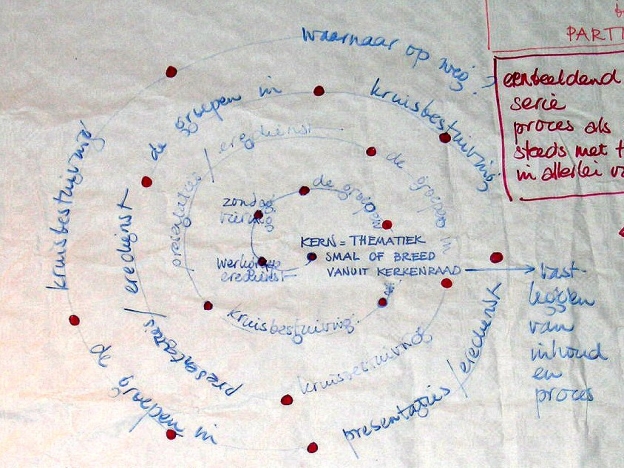 waarnaar op weg?
PARTI
eenbeeldend
serie
proces als
steeds met t
in allerlei va
de groepen in
kruisbestuiving
kruisbestuiving
presentaties / eredienst
de groepen in
presentaties / eredienst
de groepen in
kruisbestuiving
de groepen
zondag
viering
werkgroep
eredienst
KERN = THEMATIEK
SMAL OF BREED
VANUIT KERKENRAAD
kruisbestuiving
kruisbestuiving
presentaties / eredienst
vast
leggen
van
inhoud
en
proces